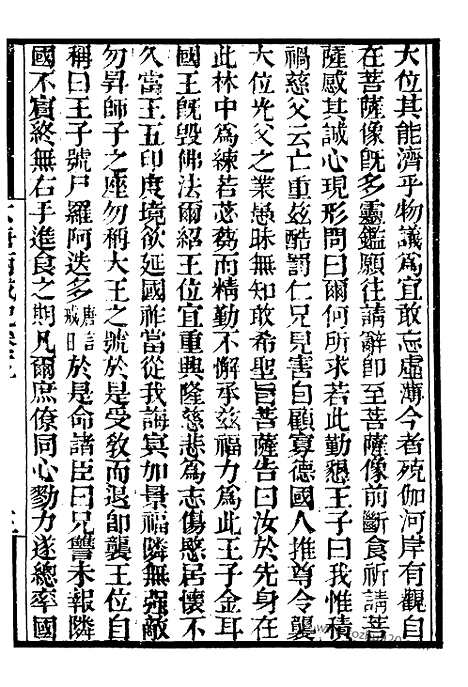 大位其能濟乎物議爲宜敢忘虛薄今者殑伽河岸有觀自
在菩薩像旣多靈鑑願往請辭卽至菩薩像前斷食祈請菩
薩感其誠心現形問曰爾何所求若此勤懇王子曰我惟積
禍慈父云亡重茲酷罰仁兄見害自顧寡德國人推尊令襲
大位光父之業愚昧無知敢希聖旨菩薩告曰汝於先身在
此林中爲練若苾蒭而精勤不懈承茲福力爲此王子金耳
國王旣毀佛法爾紹王位宜重興隆慈悲爲志傷愍居懷不
久當王五印度境欲延國祚當從我誨冥加景福隣無強敵
勿昇師子之座勿稱大王之號於是受教而退卽襲王位自
稱曰王子號尸羅阿迭多唐言戒日於是命諸臣曰兄讐未報隣
國不賓終無右手進食之期凡爾庶僚同心勠力遂總率國